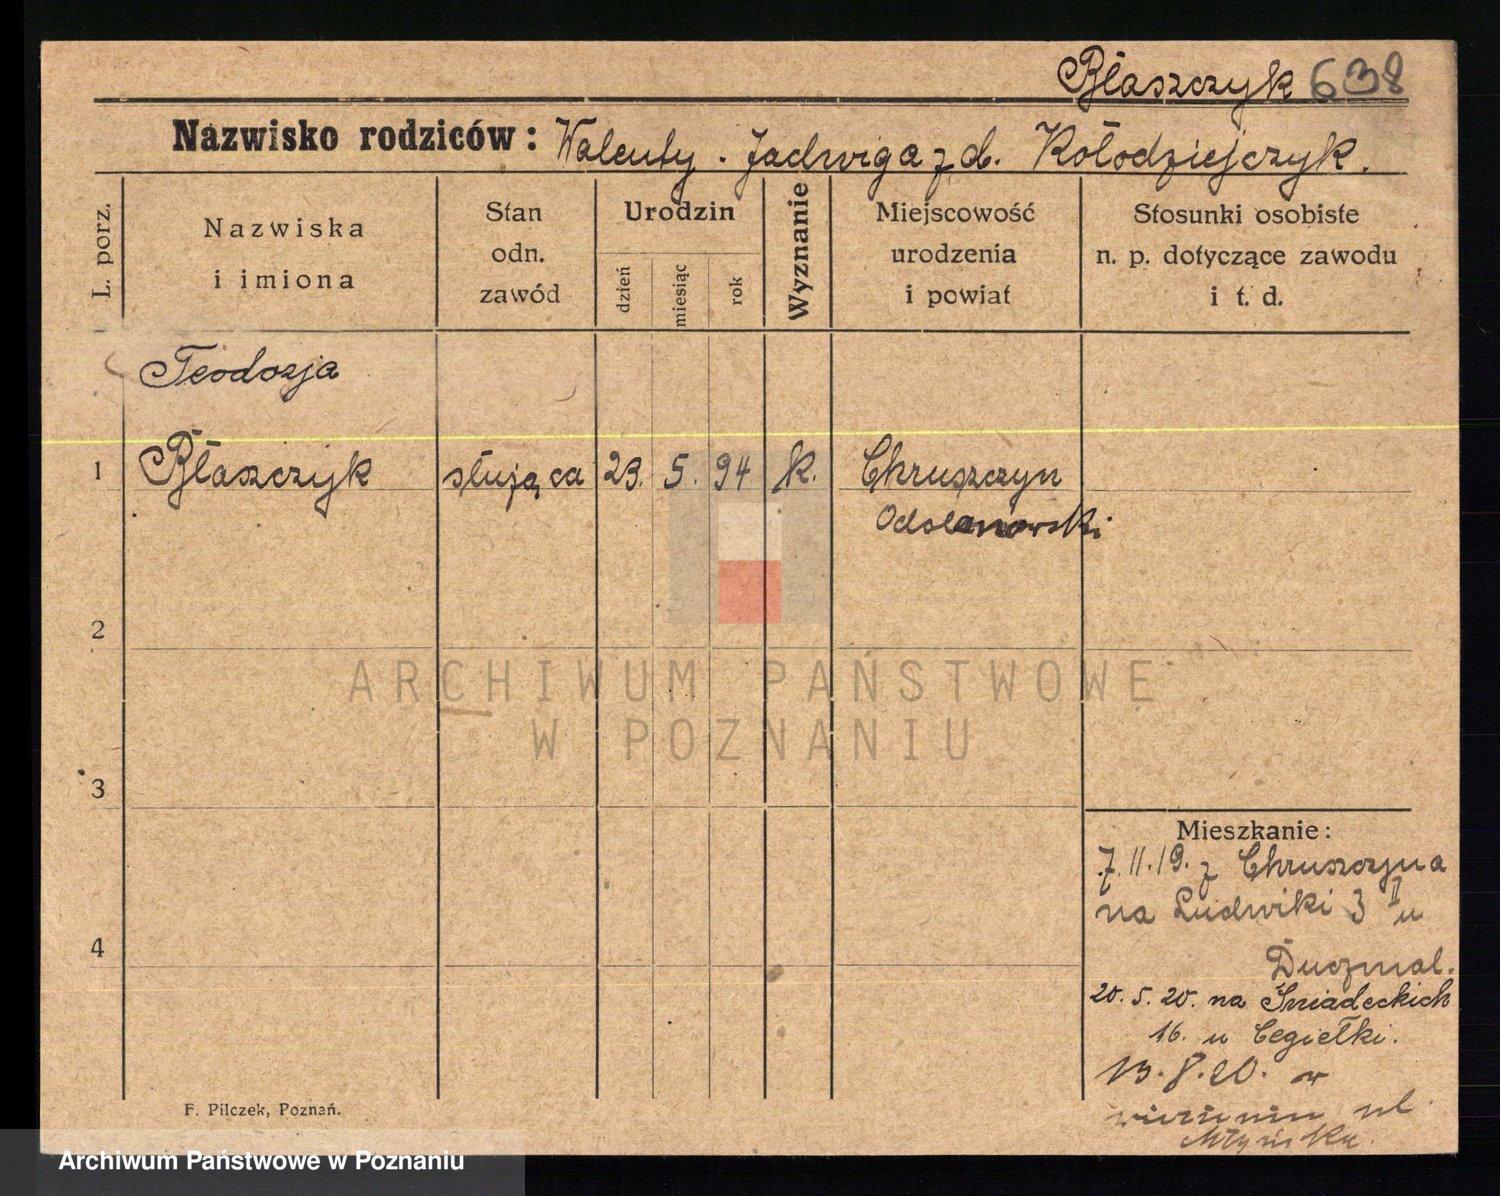 Błaszczyk 638
Nazwisko rodziców: Walenty . Jadwiga z d. Kołodziejczyk.
L. porz.
Nazwiska
i imiona
Stan
odn.
zawód
Urodzin
dzień
miesiąc
rok
Wyznanie
Miejscowość
urodzenia
i powiat
Stosunki osobiste
n. p. dotyczące zawodu
i t. d.
Teodozja
1 Błaszczyk służąca 23. 5. 94 k. Chruszczyn
Odolanowski
2
3
4
Mieszkanie:
7.11.19. z Chruszczyna
na Ludwiki 3 II u
Duczmal.
20. 5. 20. na Śniadeckich
16. u Cegiełki.
13. 8. 20. w
więzieniu ul.
Młyńska.
F. Pilczek, Poznań.
ARCHIWUM PAŃSTWOWE
W POZNANIU
Archiwum Państwowe w Poznaniu